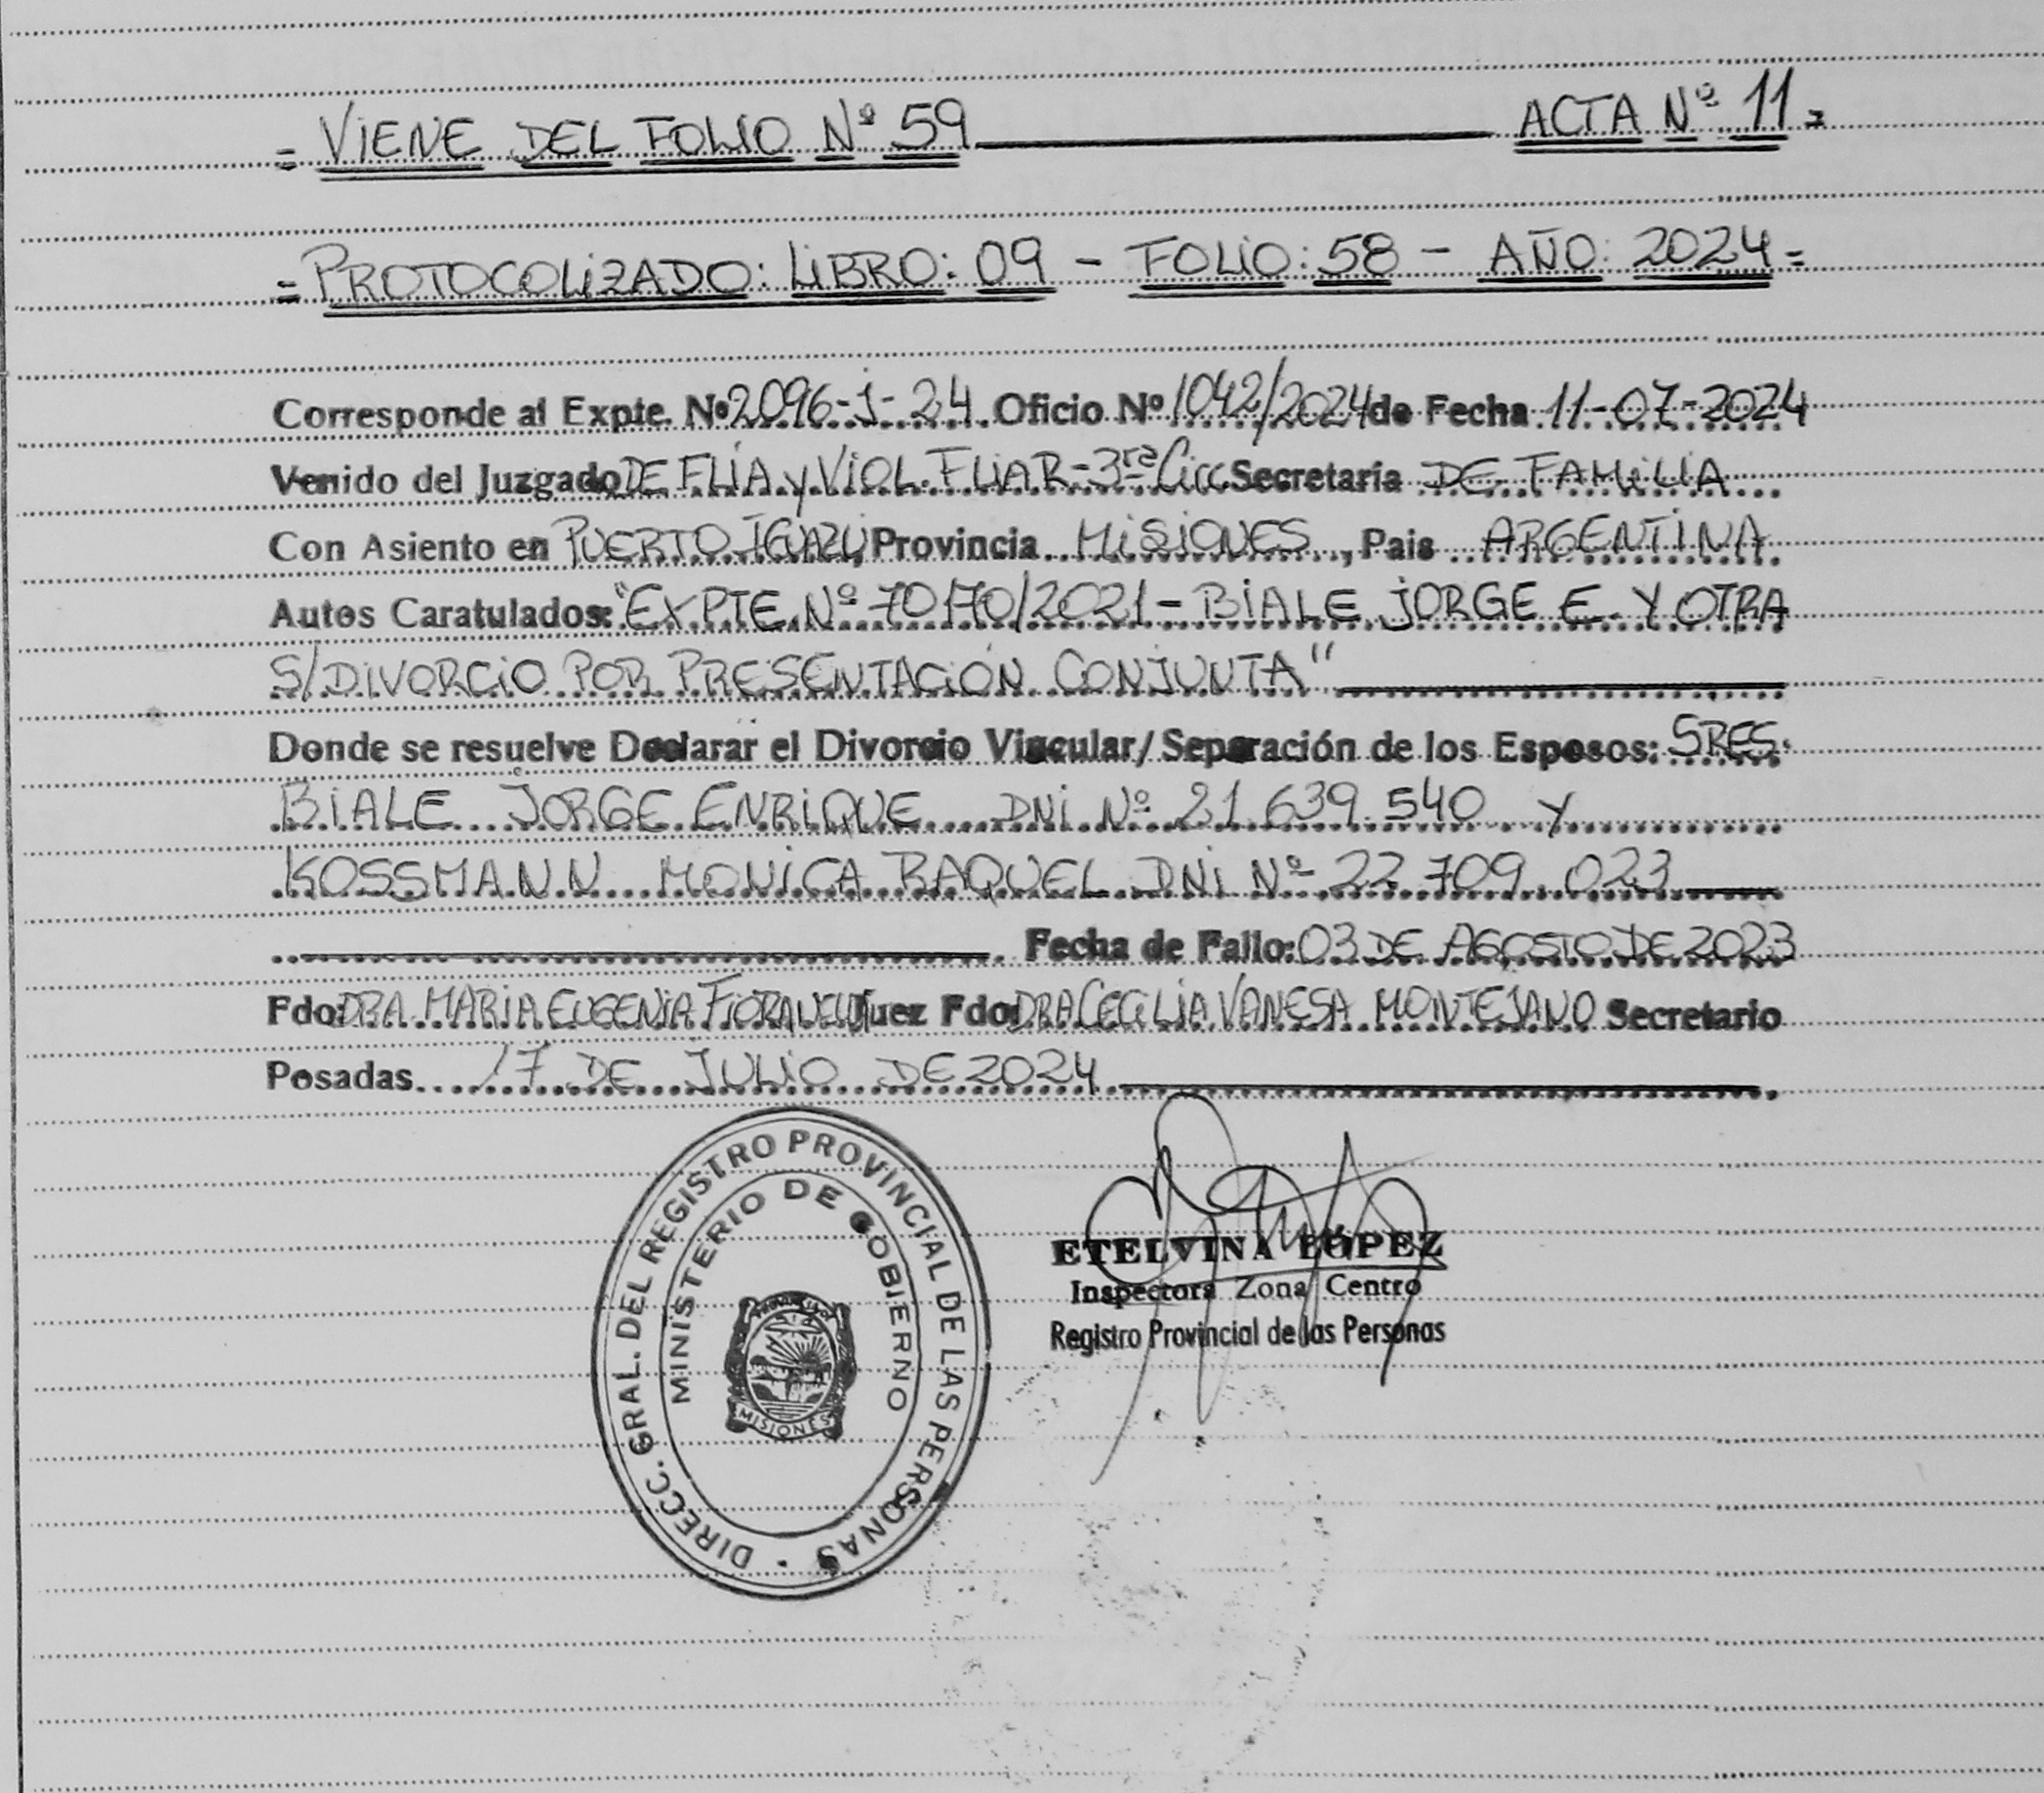 = VIENE DEL FOLIO Nº 59 ACTA Nº 11 =
= PROTOCOLIZADO: LIBRO: 09 - FOLIO: 58 - AÑO: 2024 =
Corresponde al Expte. Nº 2096-J-24 Oficio Nº 1042/2024 de Fecha 11-07-2024
Venido del Juzgado DE FLIA y VIOL. FLIAR-3ra Circ Secretaría DE FAMILIA
Con Asiento en PUERTO IGUAZU, Provincia MISIONES, Pais ARGENTINA
Autos Caratulados: "EXPTE Nº 70170/2021 - BIALE JORGE E. Y OTRA
S/DIVORCIO POR PRESENTACIÓN CONJUNTA"
Donde se resuelve Declarar el Divorcio Vincular/Separación de los Esposos: SRES.
BIALE JORGE ENRIQUE DNI Nº 21.639.540 y
KOSSMANN MONICA RAQUEL DNI Nº 22.709.023
Fecha de Fallo: 03 DE AGOSTO DE 2023
Fdo: DRA. MARIA EUGENIA Juez Fdo: DRA CECILIA VANESA MONTEJANO Secretario
Posadas 17 DE JULIO DE 2024
DIRECC. GRAL. DEL REGISTRO PROVINCIAL DE LAS PERSONAS
MINISTERIO DE GOBIERNO
MISIONES
ETELVINA LÓPEZ
Inspectora Zona Centro
Registro Provincial de las Personas